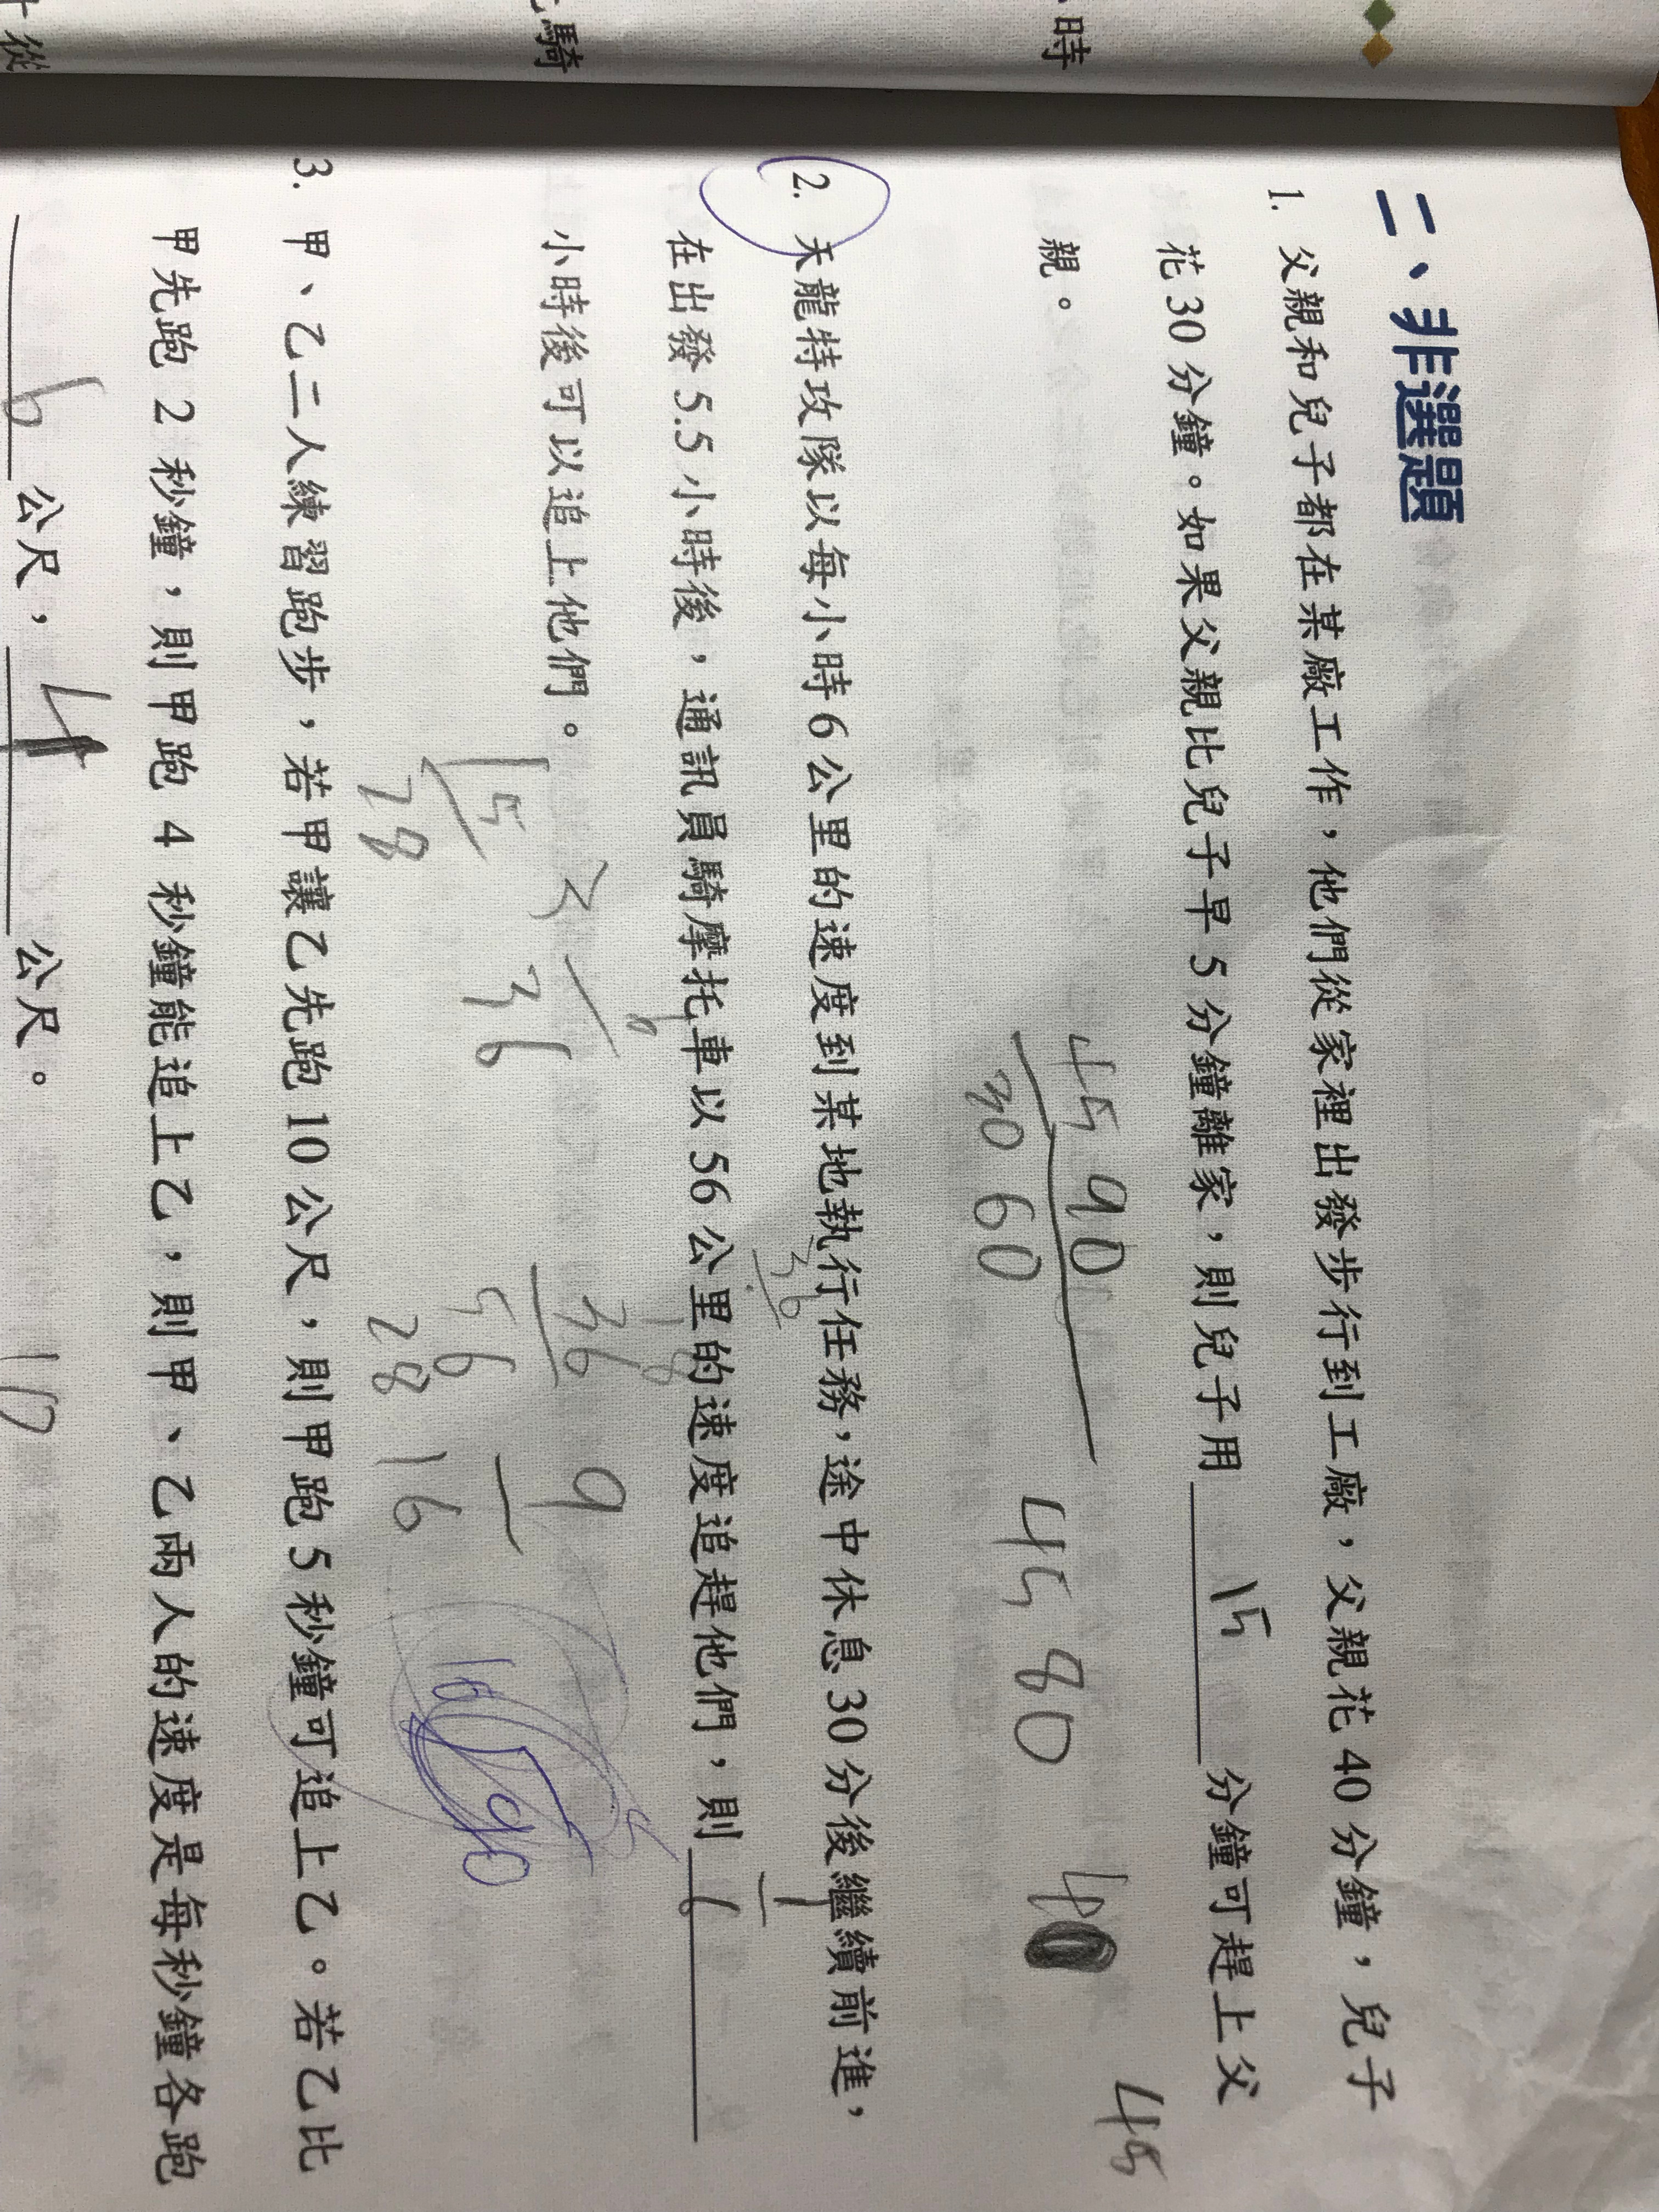 時
騎
從
二、非選題
1. 父親和兒子都在某廠工作，他們從家裡出發步行到工廠，父親花 40 分鐘，兒子
花 30 分鐘。如果父親比兒子早 5 分鐘離家，則兒子用 15 分鐘可趕上父
親。
45 90
30 60
45 80 40
45
2. 天龍特攻隊以每小時 6 公里的速度到某地執行任務，途中休息 30 分後繼續前進，
在出發 5.5 小時後，通訊員騎摩托車以 56 公里的速度追趕他們，則
小時後可以追上他們。
36
15
28
36
18
36
56
28
9
16
3. 甲、乙二人練習跑步，若甲讓乙先跑 10 公尺，則甲跑 5 秒鐘可追上乙。若乙比
甲先跑 2 秒鐘，則甲跑 4 秒鐘能追上乙，則甲、乙兩人的速度是每秒鐘各跑
6 公尺，4 公尺。
10